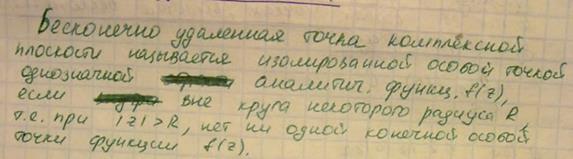 Бесконечно удаленная точка комплексной
плоскости называется изолированной особой точкой
однозначной аналитич. функц. f(z),
если вне круга некоторого радиуса R,
т.е. при |z|>R, нет ни одной конечной особой
точки функции f(z).